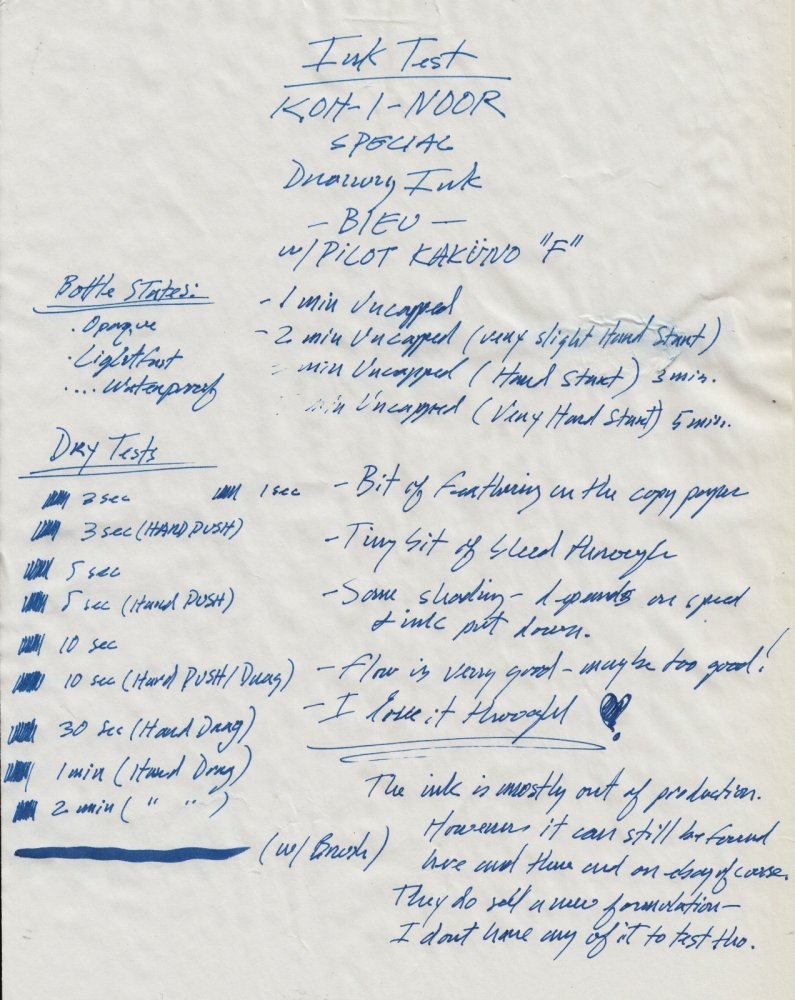 Ink Test
KOH-I-NOOR
SPECIAL
Drawing Ink
- BlEU -
w/ PILOT KAKÜNO "F"
Bottle States:
. Opaque
. Lightfast
.... Waterproof
- 1 min Uncapped
- 2 min Uncapped (very slight Hard Start)
- min Uncapped (Hard Start) 3 min.
min Uncapped (Very Hard Start) 5 min.
Dry Tests
2 sec
1 sec
3 sec (HARD PUSH)
5 sec
5 sec (Hard PUSH)
10 sec
10 sec (Hard PUSH/Drag)
30 sec (Hard Drag)
1 min (Hard Drag)
2 min ( " " )
(w/ Brush)
- Bit of feathering on the copy paper
- Tiny bit of bleed through
- Some shading - depends on speed
& ink put down.
- Flow is very good - maybe too good!
- I love it though!
The ink is mostly out of production.
However it can still be found
here and there and on ebay of course.
They do sell a new formulation -
I dont have any of it to test tho.